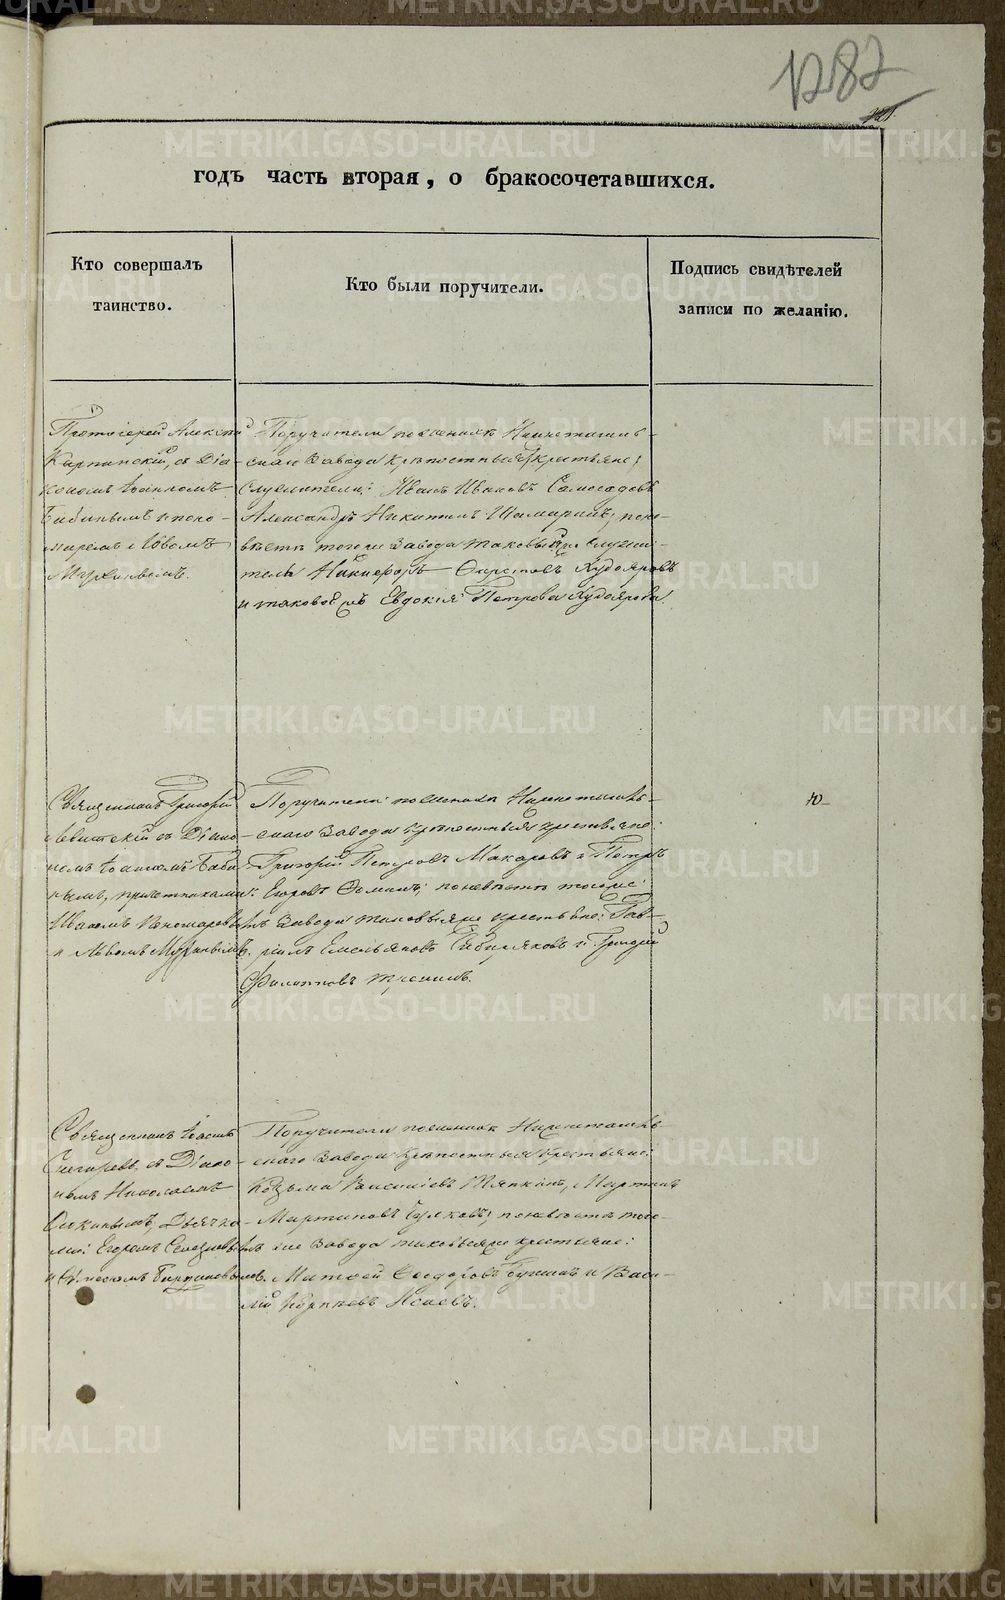 1282
годъ часть вторая, о бракосочетавшихся.
Кто совершалъ
таинство.
Кто были поручители.
Подпись свидѣтелей
записи по желанію.
Протоіерей Алексѣй
Карпинскій, съ Діа-
кономъ Іоанномъ
Бабинымъ и поно-
маремъ Львомъ
Поручители по женихѣ Нижнетагиль-
скаго Завода крѣпостныя крестьяне,
служители: Иванъ Ивановъ Самосадовъ
Александръ Никитинъ Шамаринъ; по не-
вѣстѣ того же Завода таковыя же служи-
тель Никифоръ Худояровъ
и таковой съ Евдокія Петрова Худоярова.
Священникъ Григорій
Левитскій съ Діако-
номъ Іоанномъ Баби-
нымъ, причетниками:
Иваномъ Пономаревымъ
и Львомъ
Поручители по женихѣ Нижнетагиль-
скаго Завода крѣпостныя крестьяне:
Григорій Петровъ Макаровъ и Петръ
Егоровъ Ѳоминъ; по невѣстѣ того же
Завода таковыя же крестьяне: Гав-
рилъ Емельяновъ и Григорій
Филипповъ
ю
Священникъ Іоаннъ
съ Діако-
номъ Николаемъ
Дьячка-
ми: Егоромъ Селезневымъ
и
Поручители по женихѣ Нижнетагиль-
скаго Завода крѣпостныя крестьяне:
Козьма Васильевъ Тяпкинъ, Мартинъ
Мартиновъ по невѣстѣ того
же Завода таковыя же крестьяне:
Матвей Ѳедоровъ и Васи-
лій Исаевъ.
METRIKI.GASO-URAL.RU